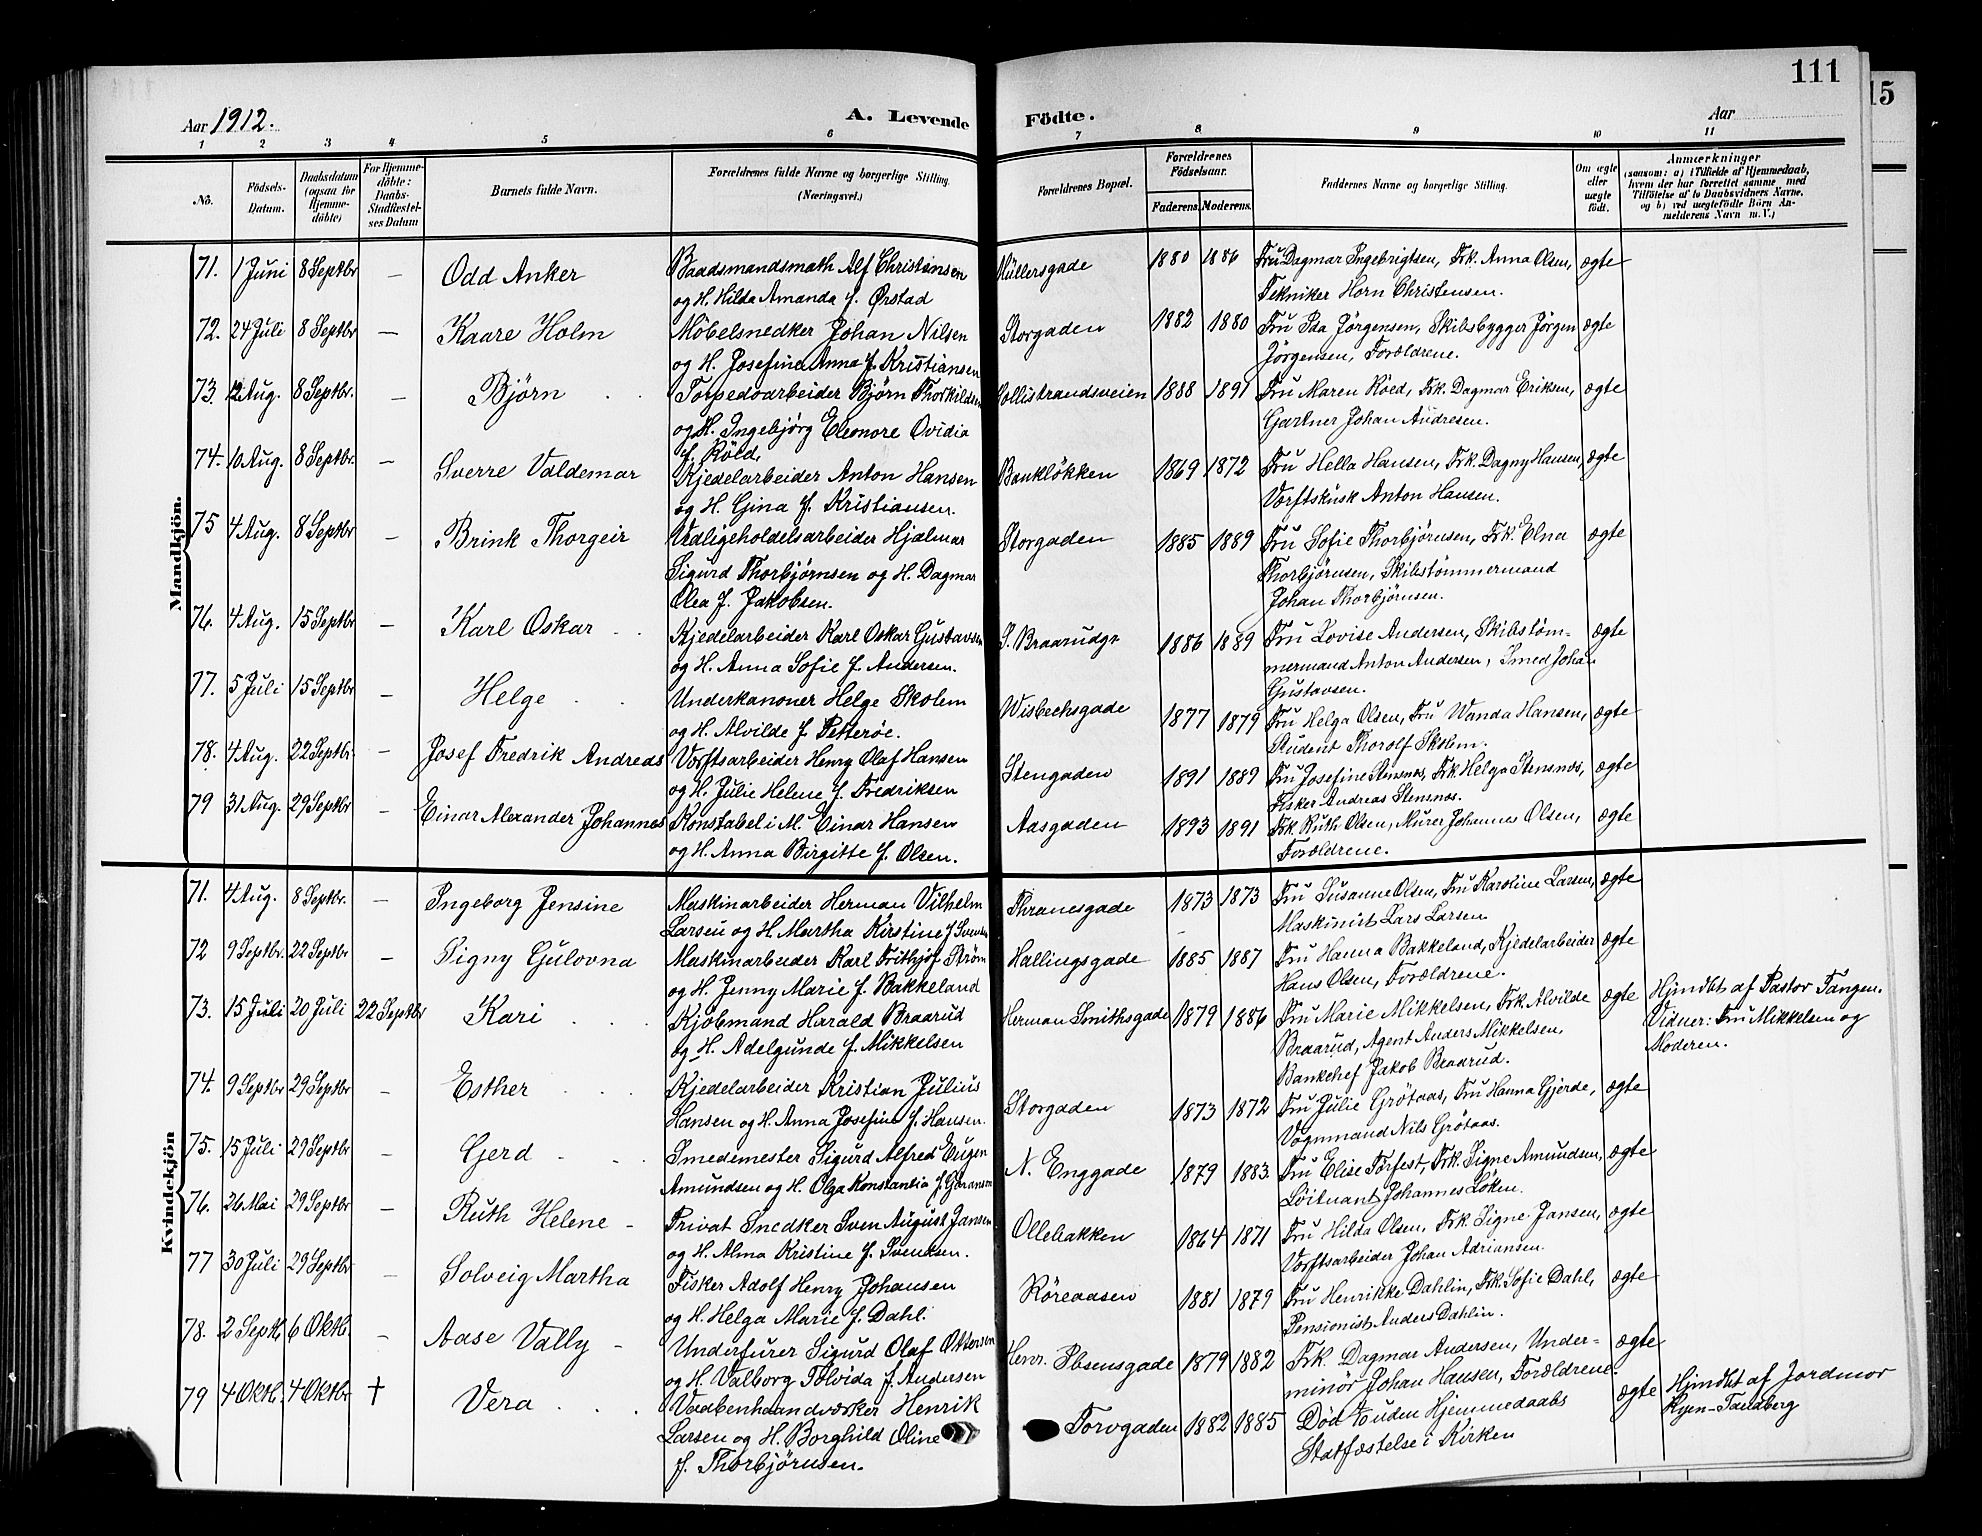 111
15
Aar 1912.
A. Levende Födte.
Aar
1 2 3 4 5 6 7 8 9 10 11
No.
Födsels-Datum.
Daabsdatum (ogsaa for Hjemme-döbte)
For Hjemme-döbte: Daabs-Stadfæstel-ses Datum
Barnets fulde Navn.
Forældrenes fulde Navne og borgerlige Stilling. (Næringsvei.)
Forældrenes Bopæl.
Forældrenes Födselsaar.
Faderens. Moderens.
Faddernes Navne og borgerlige Stilling.
Om ægte eller uægte födt.
Anmærkninger
(saasom: a) i Tilfælde af Hjemmedaab, hvem der har forrettet samme med Tilföielse af to Daabsvidners Navne. og b) ved uægtefödte Börn An-melderens Navn m. V.)
Mandkjön.
71. 1 Juni 8 Septbr — Odd Anker Baadsmandsmath Alf Christensen Müllersgade 1880 1886 Fru Dagmar Ingebrigtsen, Frk. Anna Olsen, ægte
og H. Hilda Amanda f. Ørstad Tekniker Horn Christensen.
72. 24 Juli 8 Septbr — Kaare Holm Möbelsnedker Johan Nilsen Storgaden 1882 1880 Fru Ida Jörgensen, Skibsbygger Jörgen ægte
og H. Josefine Anna f. Kristiansen Jörgensen, Forældrene.
73. 12 Aug. 8 Septbr. — Björn Torpedoarbeider Bjørn Thorkildsen Rollistrandsveien 1888 1891 Fru Maren Röed, Frk. Dagmar Eriksen, ægte
og H. Ingebjørg Eleonore Ovidia Gartner Johan Andresen.
f. Röld,
74. 10 Aug. 8 Septbr. — Sverre Valdemar Kjedelarbeider Anton Hansen Bankløkken 1869 1872 Fru Hella Hansen, Frk. Dagny Hansen, ægte
og H. Gina f. Kristiansen. Værftskusk Anton Hansen.
75 4 Aug. 8 Septbr — Brink Thorgeir Vedligeholdelsarbeider Hjalmar Storgaden 1885 1889 Fru Sofie Thorbjørnsen, Frk. Elna ægte
Sigurd Thorbjørnsen og H. Dagmar Thorbjørnsen, Skibstømmermand
Olea f. Jakobsen. Johan Thorbjørnsen.
76. 4 Aug. 15 Septbr — Karl Oskar Kjedelarbeider Karl Oskar Gustavsen S. Braarudgr 1886 1889 Fru Lovise Andersen, Skibstöm- ægte
og H. Anna Sofie f. Andersen. mermand Anton Andersen, Smed Johan
Gustavsen.
77. 5 Juli 15 Septbr — Helge Underkanoner Helge Skolem Wisbechsgade 1877 1879 Fru Helga Olsen, Fru Wanda Hansen, ægte
og H. Alvilde f. Petterøe. Student Thorolf Skolem.
78. 4 Aug. 22 Septbr. — Josef Fredrik Andreas Værftsarbeider Henry Olaf Hansen Stengaden 1891 1889 Fru Josefine Stensnæs, Frk. Helga Stensnæs, ægte
og H. Julie Helene f. Fredriksen Fisker Andreas Stensnæs.
79 31 Aug. 29 Septbr — Einar Alexander Johannes Konstabel i M. Einar Hansen Aasgaden 1893 1891 Frk. Ruth Olsen, Murer Johannes Olsen, ægte
og H. Anna Birgitte f. Olsen. Forældrene.
Kvindekjön
71. 4 Aug. 8 Septbr. — Ingeborg Jensine Maskinarbeider Herman Vilhelm Thranesgade 1873 1873 Fru Susanne Olsen, Fru Karoline Larsen, ægte
Larsen og H. Martha Kirstine f. Svensen Maskinist Lars Larsen
72 9 Septbr. 22 Septbr — Signy Gulovna Maskinarbeider Karl Frithjof Strøm Hallingsgade 1885 1887 Fru Hanna Bakkeland, Kjedelarbeider ægte
og H. Jenny Marie f. Bakkeland Hans Olsen, Forældrene.
73. 15 Juli 20 Juli 22 Septbr Kari Kjöbmand Harald Braarud Herman Smithsgade 1879 1886 Fru Marie Mikkelsen, Frk. Alvilde ægte Hjmdbt af Pastor Tangen.
og H. Adelgunde f. Mikkelsen Braarud, Agent Anders Mikkelsen, Vidner: Fru Mikkelsen og
Bankchef Jakob Braarud. Moderen.
74. 9 Septbr 29 Septbr — Esther Kjedelarbeider Kristian Julius Storgaden 1873 1872 Fru Julie Grötaas, Fru Hanna Gjerde, ægte
Hansen og H. Anna Josefine f. Hansen. Vognmand Nils Grötaas.
75. 15 Juli 29 Septbr — Gerd Smedemester Sigurd Alfred Eugen N. Enggade 1879 1883. Fru Elise Forfest, Frk. Signe Amundsen, ægte
Amundsen og H. Olga Konstantia f. Göranson Löitnant Johannes Löken.
76. 26 Mai 29 Septbr — Ruth Helene Privat Snedker Sven August Jansen Ollebakken 1864 1871 Fru Hilda Olsen, Frk. Signe Jansen, ægte
og H. Alma Kristine f. Svensen. Værftsarbeider Johan Adriansen.
77 30 Juli 29 Septbr — Solveig Martha Fisker Adolf Henry Johansen Röreaasen 1881 1879 Fru Henrikke Dahlin, Frk. Sofie Dahl, ægte
og H. Helga Marie f. Dahl. Pensionist Anders Dahlin.
78. 2 Septb. 6 Oktb. — Aase Vally Underfurer Sigurd Olaf Ottersen Henr. Ibsensgade 1879 1882 Frk. Dagmar Andersen, Under- ægte
og H. Valborg Tolvida f. Andersen minör Johan Hansen, Forældrene.
79 4 Oktb. 4 Oktbr † Vera Vaabenhaandværker Henrik Torvgaden 1882 1885 Död uden Hjemmedaabs ægte Hjmdbt af Jordmor
Larsen og H. Borghild Oline Statfæstelse i Kirken Ryen-Tandberg
f. Thorbjørnsen.